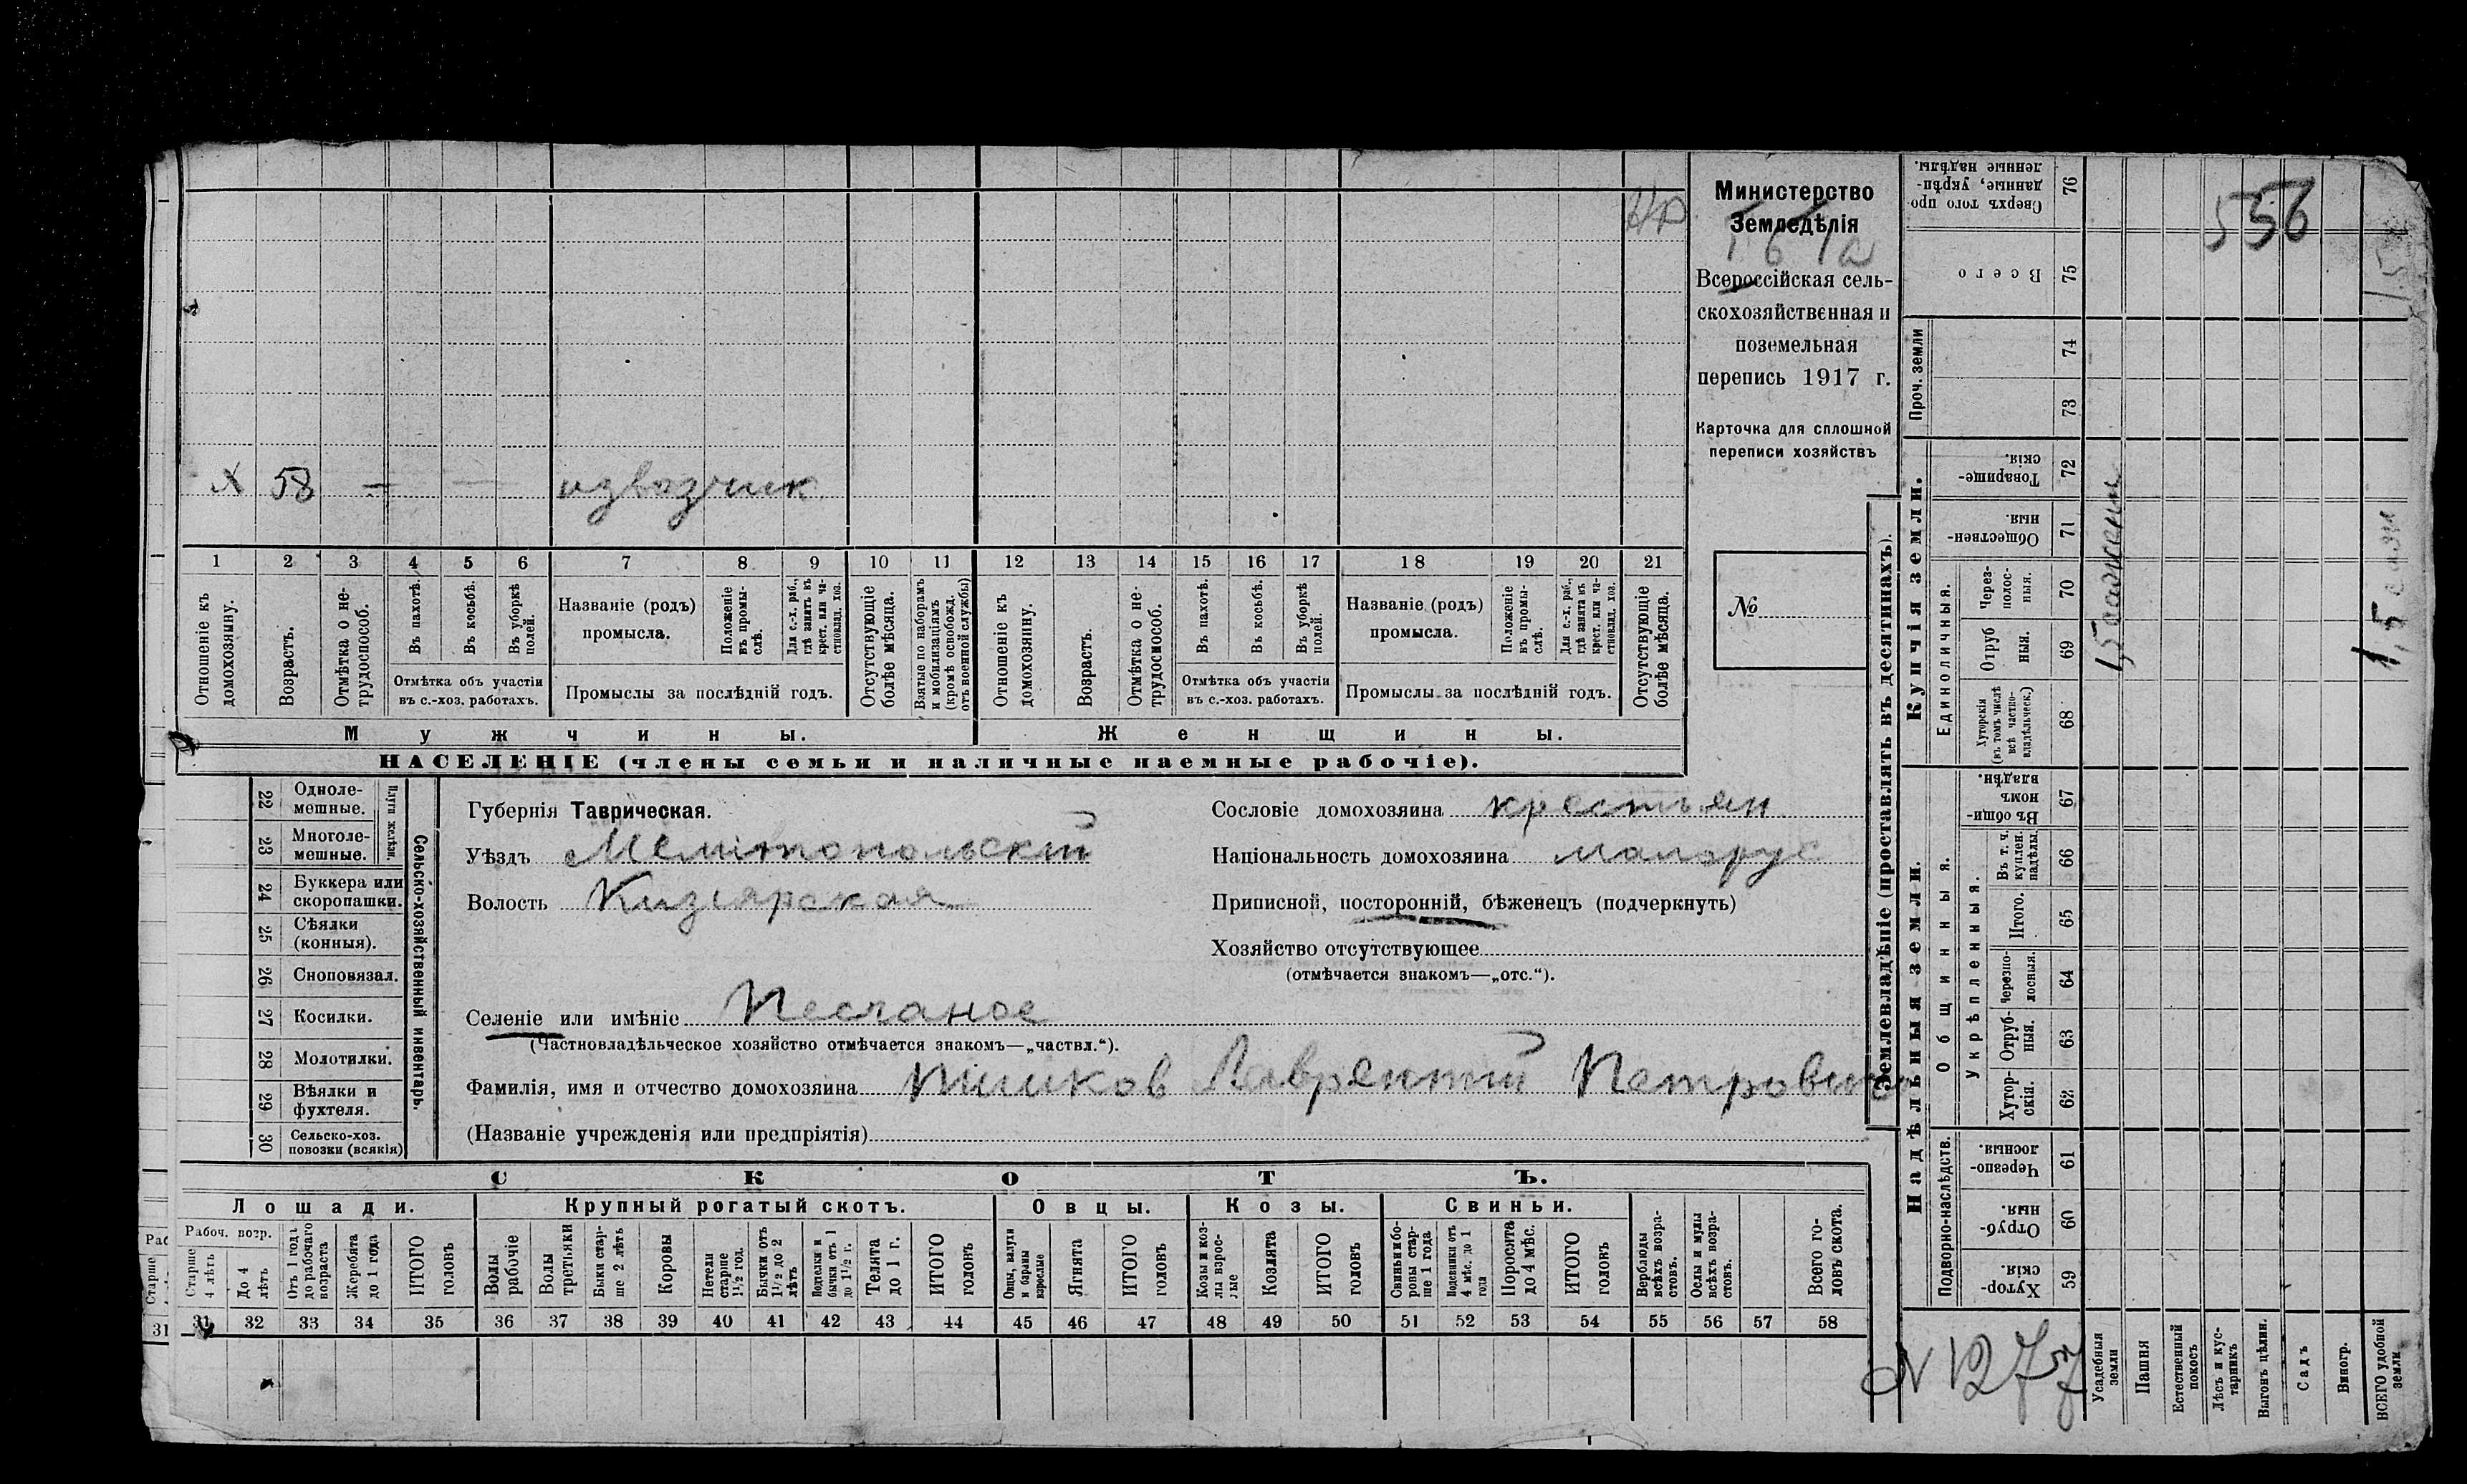 Министерство
Земледѣлія
Всероссійская сель-
скохозяйственная и
поземельная
перепись 1917 г.
Карточка для сплошной
переписи хозяйствъ
№
Х 58 — — извозчик
1 2 3 4 5 6 7 8 9 10 11 12 13 14 15 16 17 18 19 20 21
Отношеніе къ домохозяину.
Возрастъ.
Отмѣтка о не-трудоспособ.
Въ пахотѣ.
Въ косьбѣ.
Въ уборкѣ полей.
Отмѣтка объ участіи
въ с.-хоз. работахъ.
Названіе (родъ)
промысла.
Положеніе въ промы-слѣ.
Для с.-х. раб., гдѣ занятъ въ крест. или ча-стновлад. хоз.
Промыслы за послѣдній годъ.
Отсутствующіе болѣе мѣсяца.
Взятые по наборамъ и мобилизаціямъ (кромѣ освобожд. отъ военной службы)
Отношеніе къ домохозяину.
Возрастъ.
Отмѣтка о не-трудоспособ.
Въ пахотѣ.
Въ косьбѣ.
Въ уборкѣ полей.
Отмѣтка объ участіи
въ с.-хоз. работахъ.
Названіе (родъ)
промысла.
Положеніе въ промы-слѣ.
Для с.-х. раб., гдѣ занята въ крест. или ча-стновлад. хоз.
Промыслы за послѣдній годъ.
Отсутствующіе болѣе мѣсяца.
Мужчины.
Женщины.
НАСЕЛЕНІЕ (члены семьи и наличные наемные рабочіе).
22 Одноле-мешные.
23 Многоле-мешные.
Плуги желѣзн.
24 Буккера или скоропашки.
25 Сѣялки (конныя).
26 Сноповязал.
27 Косилки.
28 Молотилки.
29 Вѣялки и фухтеля.
30 Сельско-хоз. повозки (всякія)
Сельско-хозяйственный инвентарь.
Губернія Таврическая.
Уѣздъ Мелитопольскій
Волость Кизіярская
Сословіе домохозяина крестьян
Національность домохозяина малорус
Приписной, посторонній, бѣженецъ (подчеркнуть)
Хозяйство отсутствующее
(отмѣчается знакомъ—„отс.“).
Селеніе или имѣніе Песчаное
(Частновладѣльческое хозяйство отмѣчается знакомъ—„частвл.“).
Фамилія, имя и отчество домохозяина Лаврентій Петрович
(Названіе учрежденія или предпріятія)
СКОТЪ.
Лошади.
Крупный рогатый скотъ.
Овцы.
Козы.
Свиньи.
Рабоч. возр.
Старше 4 лѣтъ
До 4 лѣтъ
Отъ 1 года до рабочаго возраста
Жеребята до 1 года
ИТОГО головъ
Волы рабочіе
Волы третьяки
Быки стар-ше 2 лѣтъ
Коровы
Нетели старше 1½ год.
Бычки отъ 1½ до 2 лѣтъ
Подтелки и бычки отъ 1 до 1½ г.
Телята до 1 г.
ИТОГО головъ
Овцы, валухи и бараны взрослые
Ягнята
ИТОГО головъ
Козы и коз-лы взрос-лые
Козлята
ИТОГО головъ
Свиньи и бо-ровы стар-ше 1 года
Подсвинки отъ 4 мѣс. до 1 года
Поросята до 4 мѣс.
ИТОГО головъ
Верблюды всѣхъ возра-стовъ.
Ослы и мулы всѣхъ возра-стовъ.
Всего го-ловъ скота.
31 32 33 34 35 36 37 38 39 40 41 42 43 44 45 46 47 48 49 50 51 52 53 54 55 56 57 58
Землевладѣніе (проставлять въ десятинахъ).
Купчія земли.
Надѣльныя земли.
Сверхъ того про-данные, укрѣп-ленные надѣлы. 76
Всего 75
Проч. земли
74
73
Товарище-скія. 72
Обществен-ныя. 71
Единоличныя.
Через-полос-ныя. 70
Отруб-ныя. 69
Хуторскія (въ томъ числѣ всѣ частно-владѣльческ.) 68
Общинныя.
Въ общи-номъ владѣн. 67
Укрѣпленныя.
Въ т. ч. куплен. надѣлы. 66
Итого. 65
Черезпо-лосныя. 64
Отруб-ныя. 63
Хутор-скія. 62
Подворно-наслѣдств.
Черезпо-лосныя. 61
Отруб-ныя. 60
Хутор-скія. 59
Усадебныя земли
Пашня
Естественный покосъ
Лѣсъ и кус-тарникъ
Выгонъ цѣлин.
Садъ
Виногр.
ВСЕГО удобной земли
556
N 1277